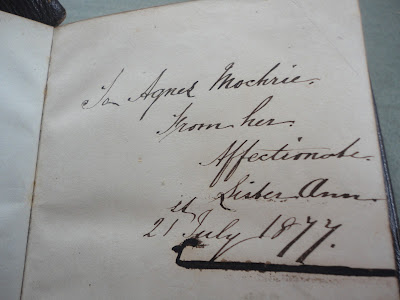 To Agnes Mochrie.
From her.
Affectionate.
Sister Ann
21st July 1877.